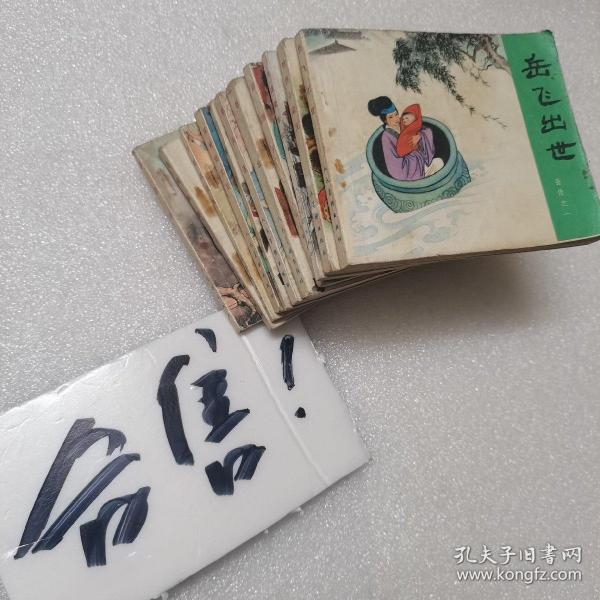 岳飞出世
岳传之一
合售！
孔夫子旧书网
www.kongfz.com